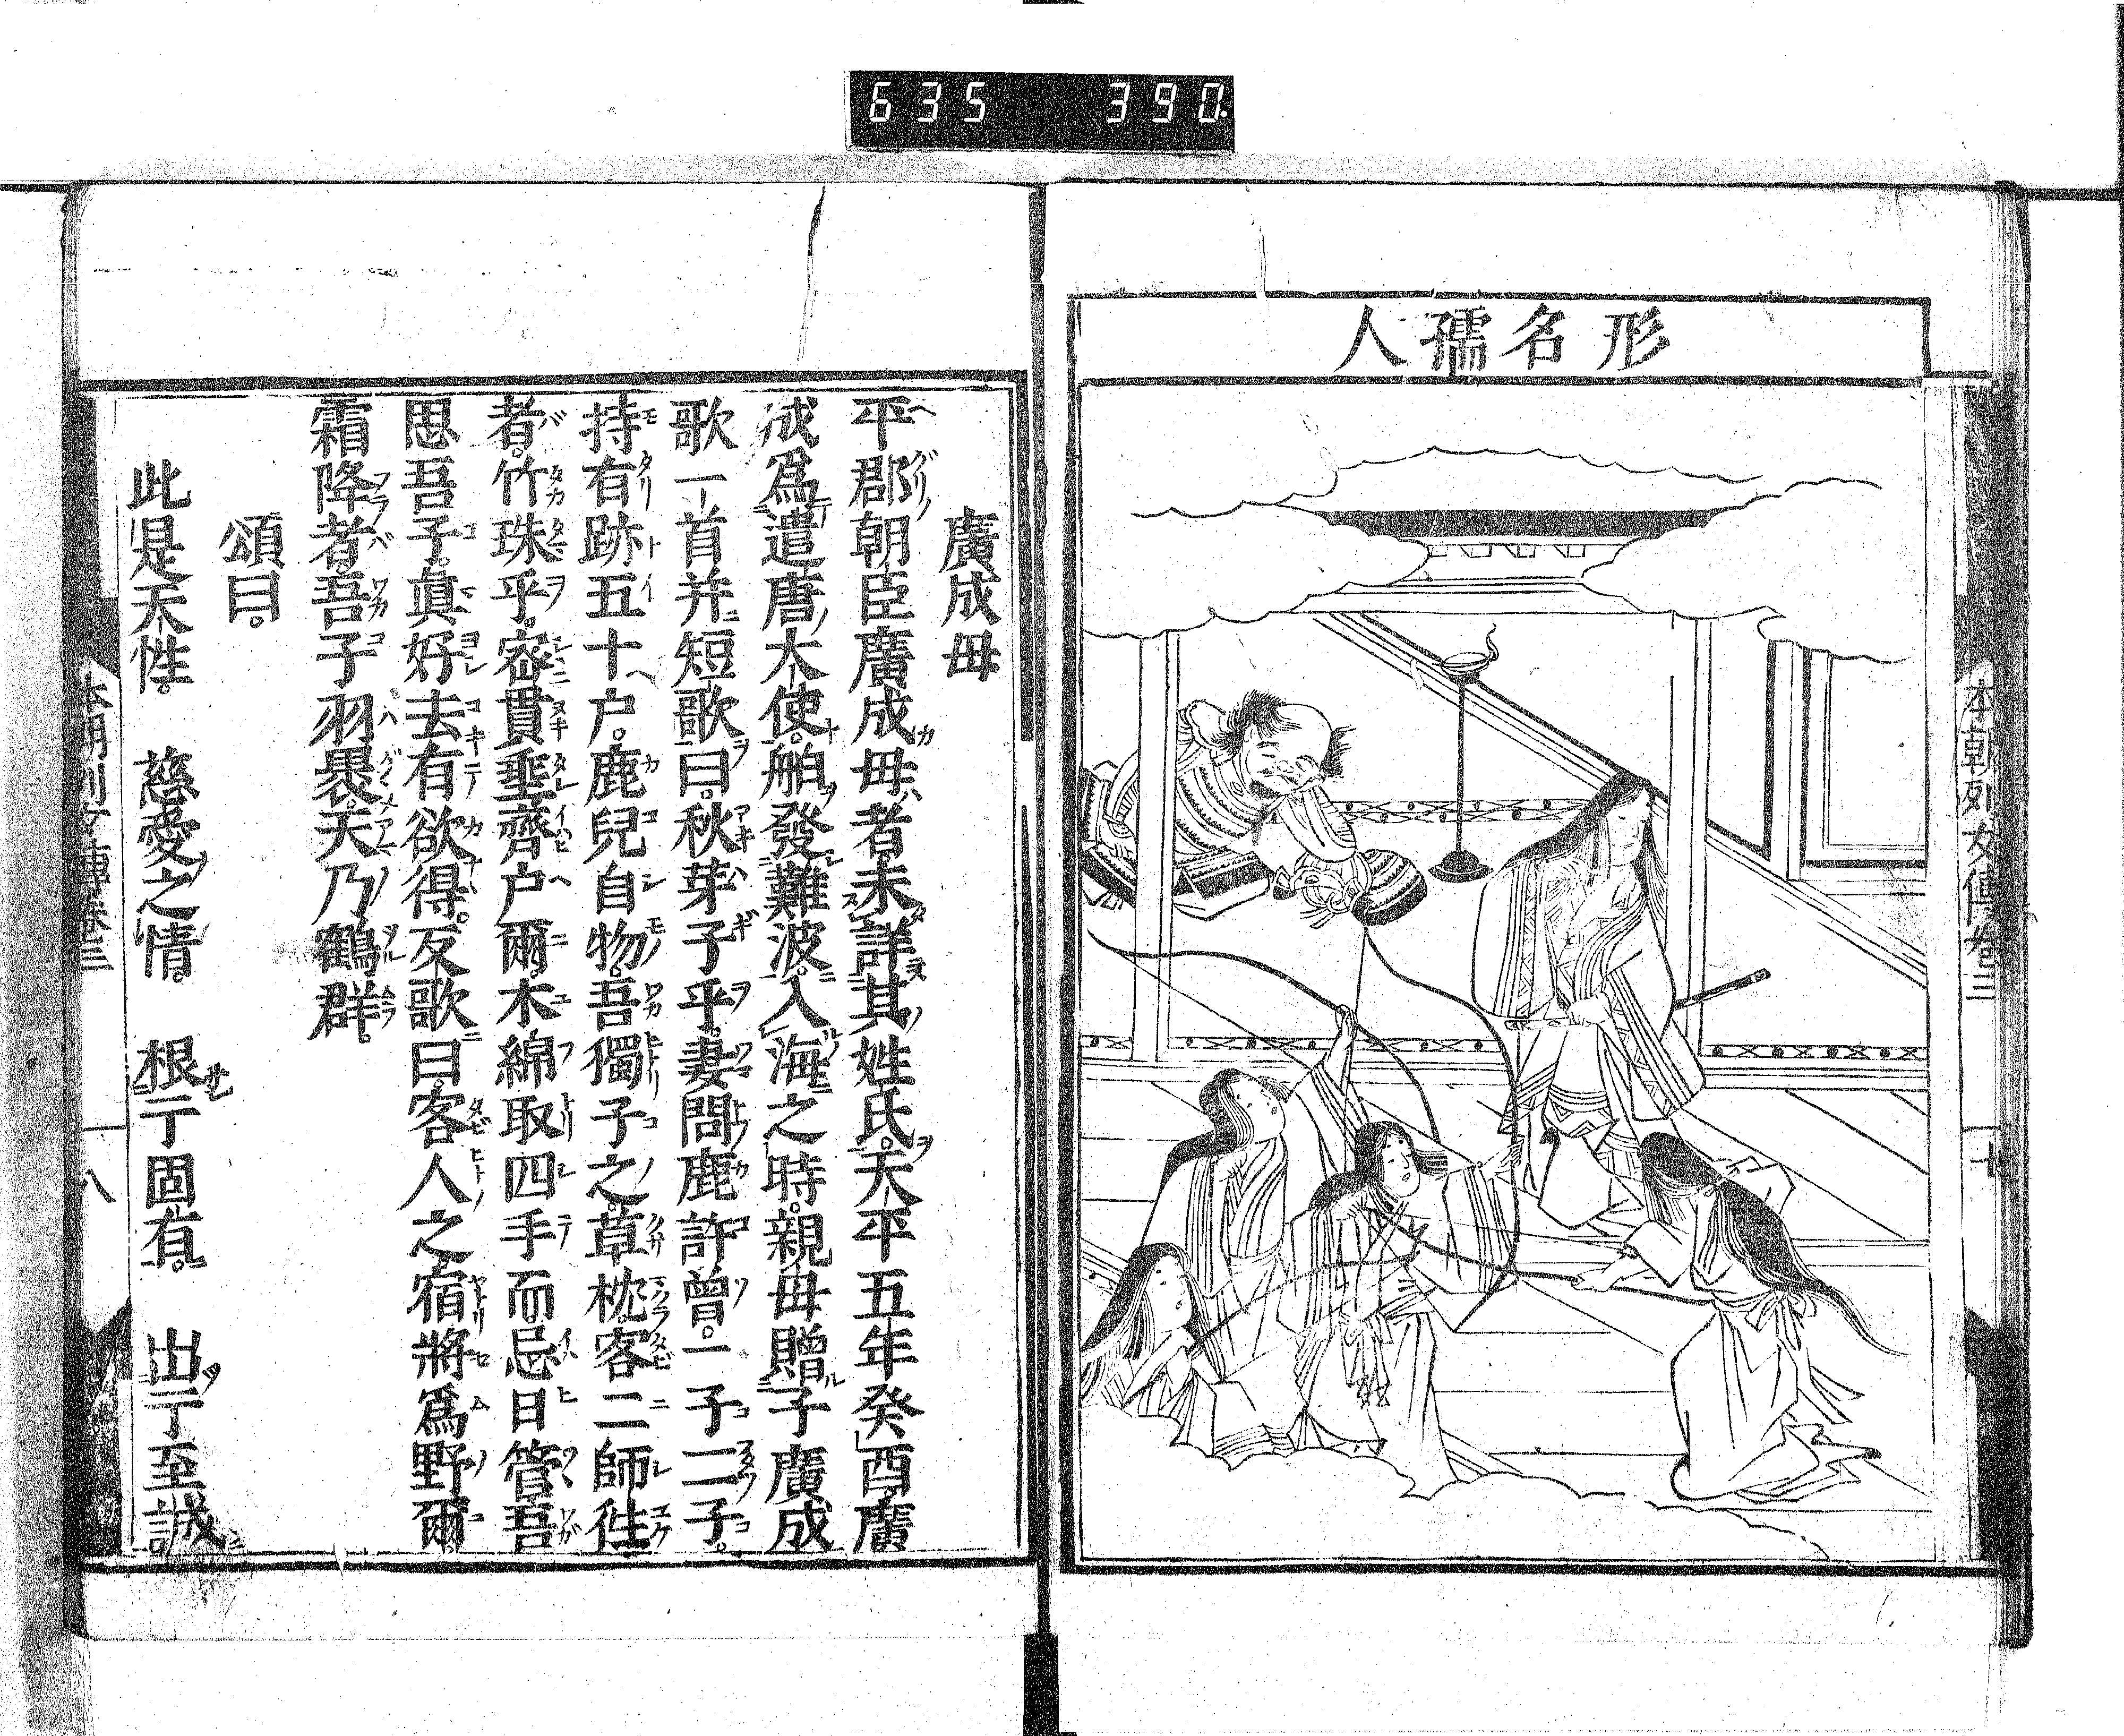 635 390.
形名孺人
本朝列女傳卷三
十七
廣成毋
平郡朝臣廣成毋者未詳其姓氏。天平五年癸酉。廣
成爲遣唐大使。舶發難波。入海之時。親毋贈子廣成
歌一首并短歌曰。秋芽子乎。妻問鹿許曾。一子二子。
持有跡五十戸。鹿兒自物。吾獨子之。草枕。客二師徃
者。竹珠乎。密貫垂齊戸爾。木綿取四手而。忌日管。吾
思吾子。眞好去有欲得。反歌曰。客人之。宿將爲野爾。
霜降者。吾子羽褁。天乃鶴群。
頌曰。
此是天性。 慈愛之情。 根亍固有。 出亍至誠
本朝列女傳卷三
十八